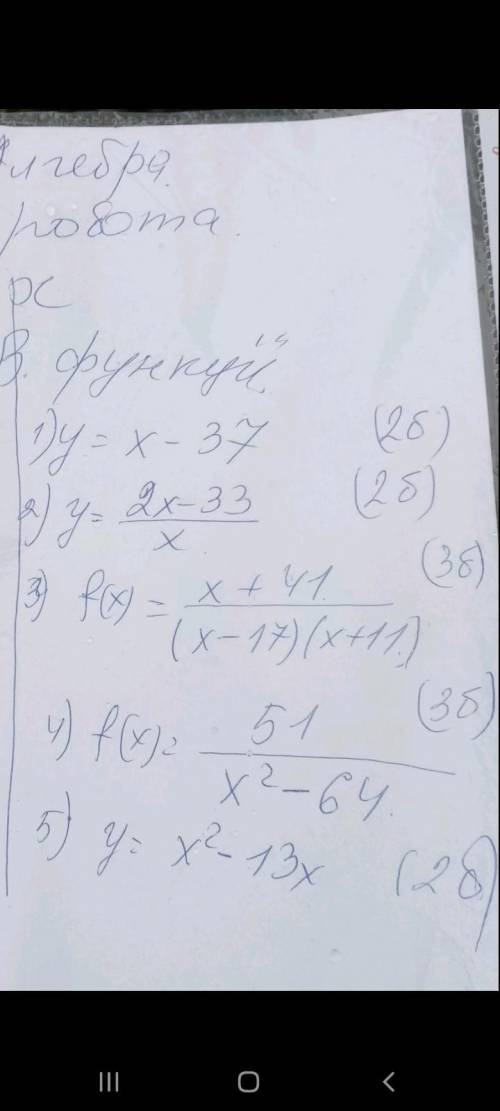 Алгебра.
робота.
В. функцій.
1) y = x - 37 (2б)
2) y = \frac{2x-33}{x} (2б)
3) f(x) = \frac{x+41}{(x-17)(x+11)} (3б)
4) f(x) = \frac{51}{x²-64} (3б)
5) y = x² - 13x (2б)